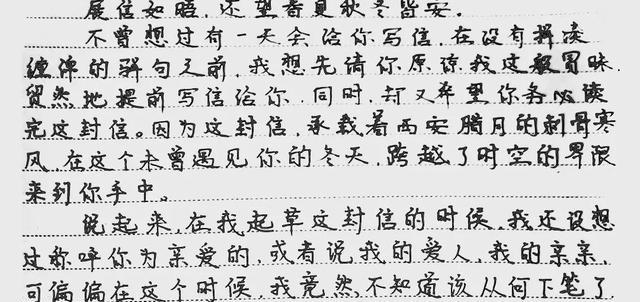 展信如晤,还望春夏秋冬皆安.
不曾想过有一天会给你写信,在没有
缠绵的骈句之前,我想先请你原谅我这般冒昧.
贸然地提前写信给你,同时,却又希望你务必读
完这封信。因为这封信,承载着西安腊月的刺骨寒
风,在这个未曾遇见你的冬天,跨越了时空的界限
来到你手中。
说起来,在我起草这封信的时候,我还没想
过称呼你为亲爱的,或者说我的爱人,我的亲亲,
可偏偏在这个时候,我竟然,不知道该从何下笔了